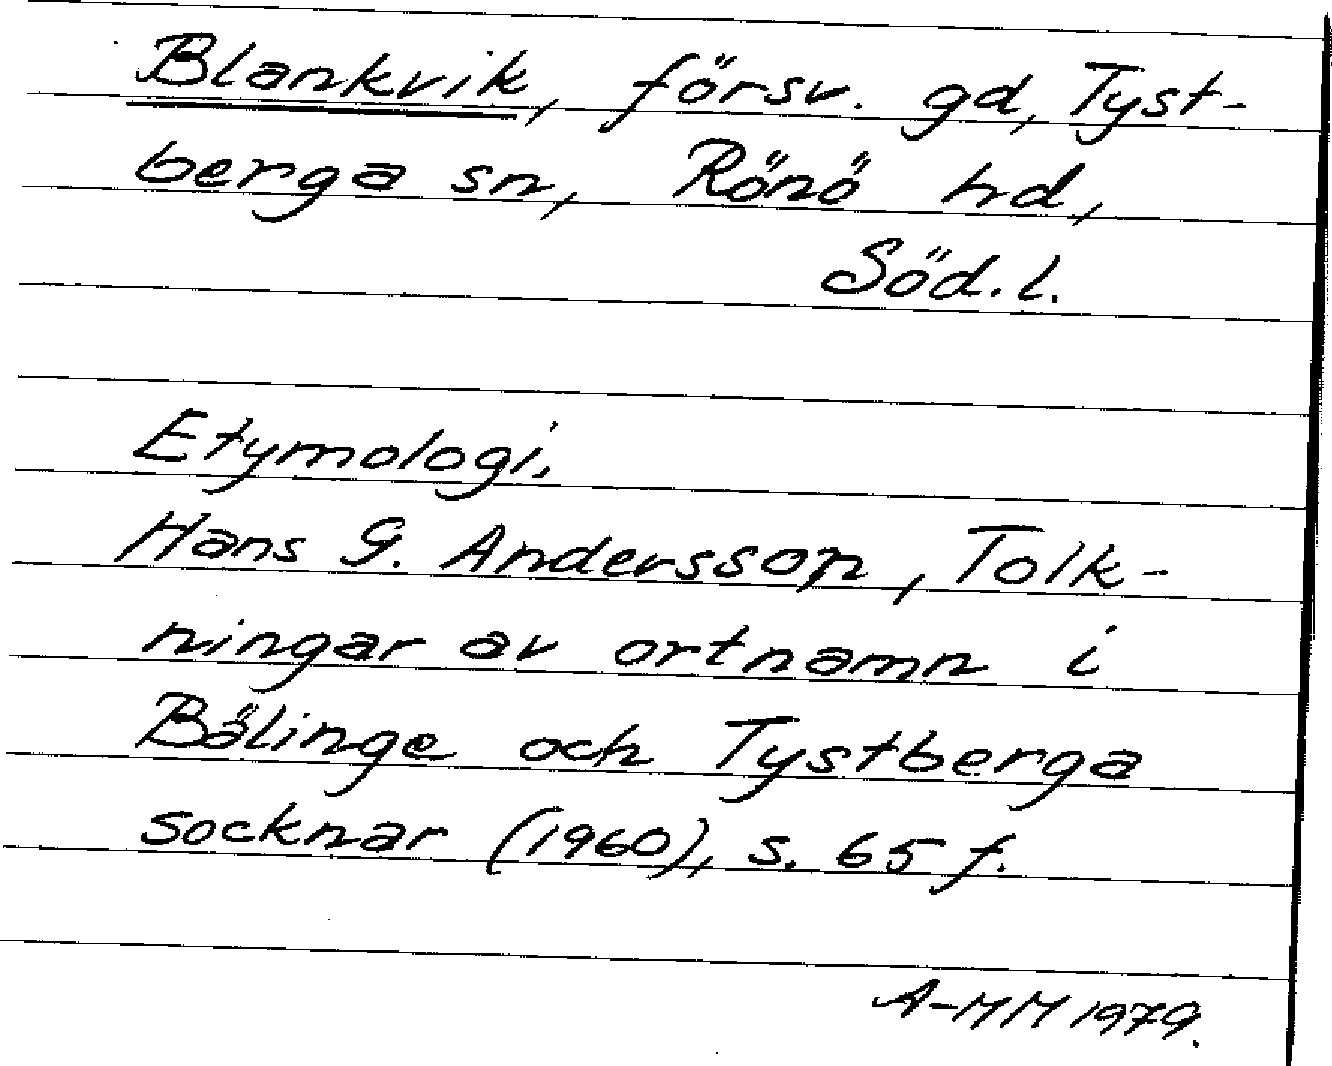 Blankvik, försv. gd, Tyst-
berga sn, Rönö hd,
Söd. l.
Etymologi.
Hans G. Andersson, Tolk-
ningar av ortnamn i
Bälinge och Tystberga
socknar (1960), s. 65 f.
A-MM 1979.